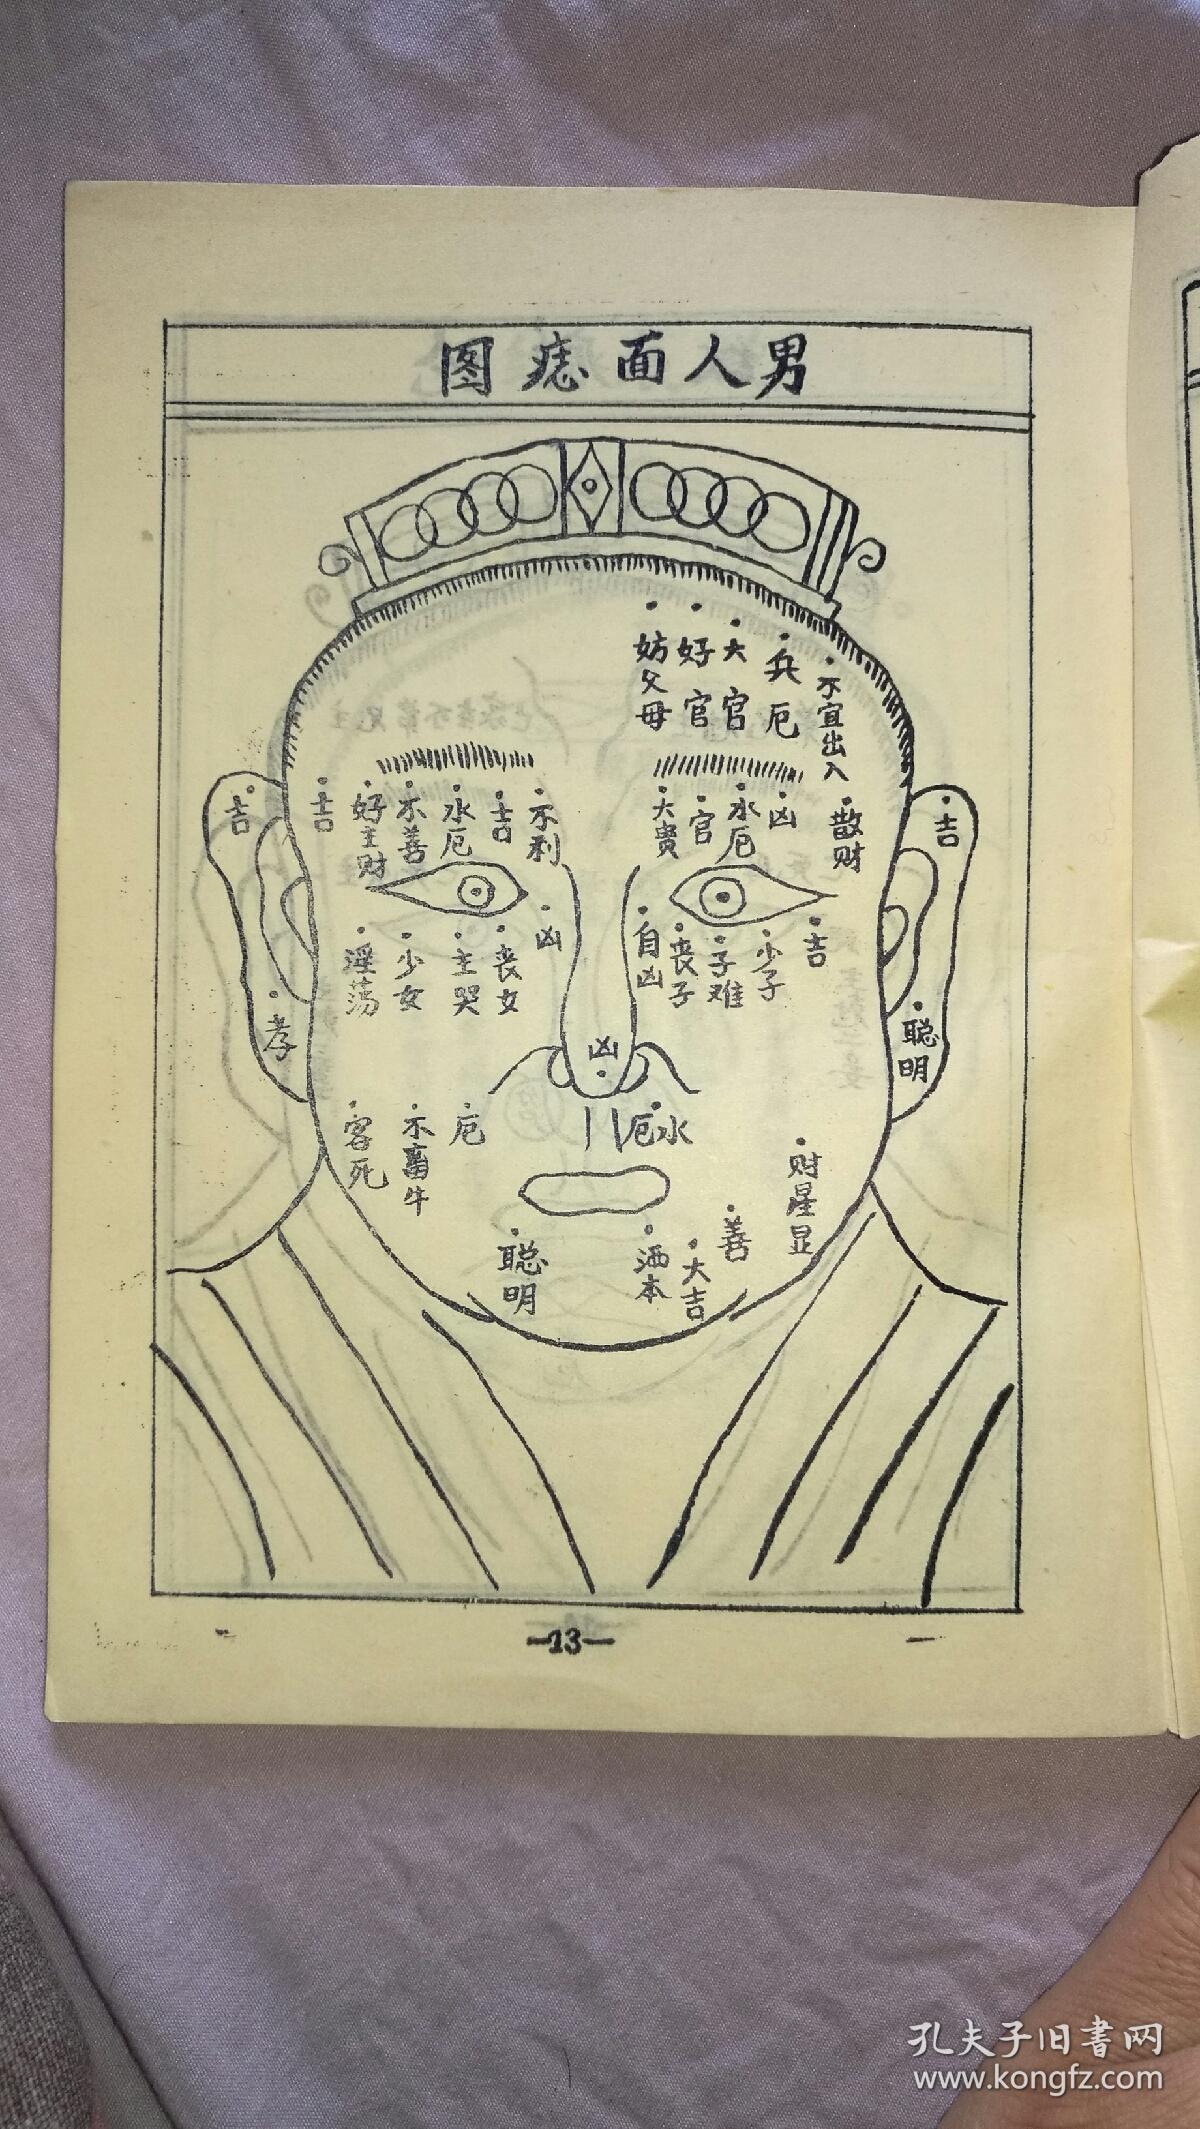 男人面痣图
妨父母
好官
大官
兵厄
不宜出入
吉
吉
好主财
不善
水厄
吉
不利
大貴
官
水厄
凶
散财
吉
淫荡
少女
主哭
丧女
凶
自凶
丧子
子难
少子
吉
孝
聪明
凶
客死
不离牛
厄
水厄
财星显
聪明
酒本
大吉
善
—13—
孔夫子旧書网
www.kongfz.com